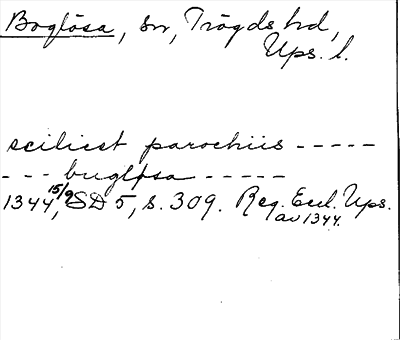 Boglösa, sn, Trögds hd,
Ups. l.
scilicet parochiis -----
--- bugløsa -----
1344 15/9, SD 5, s. 309. Reg. Eccl. Ups.
av 1344.